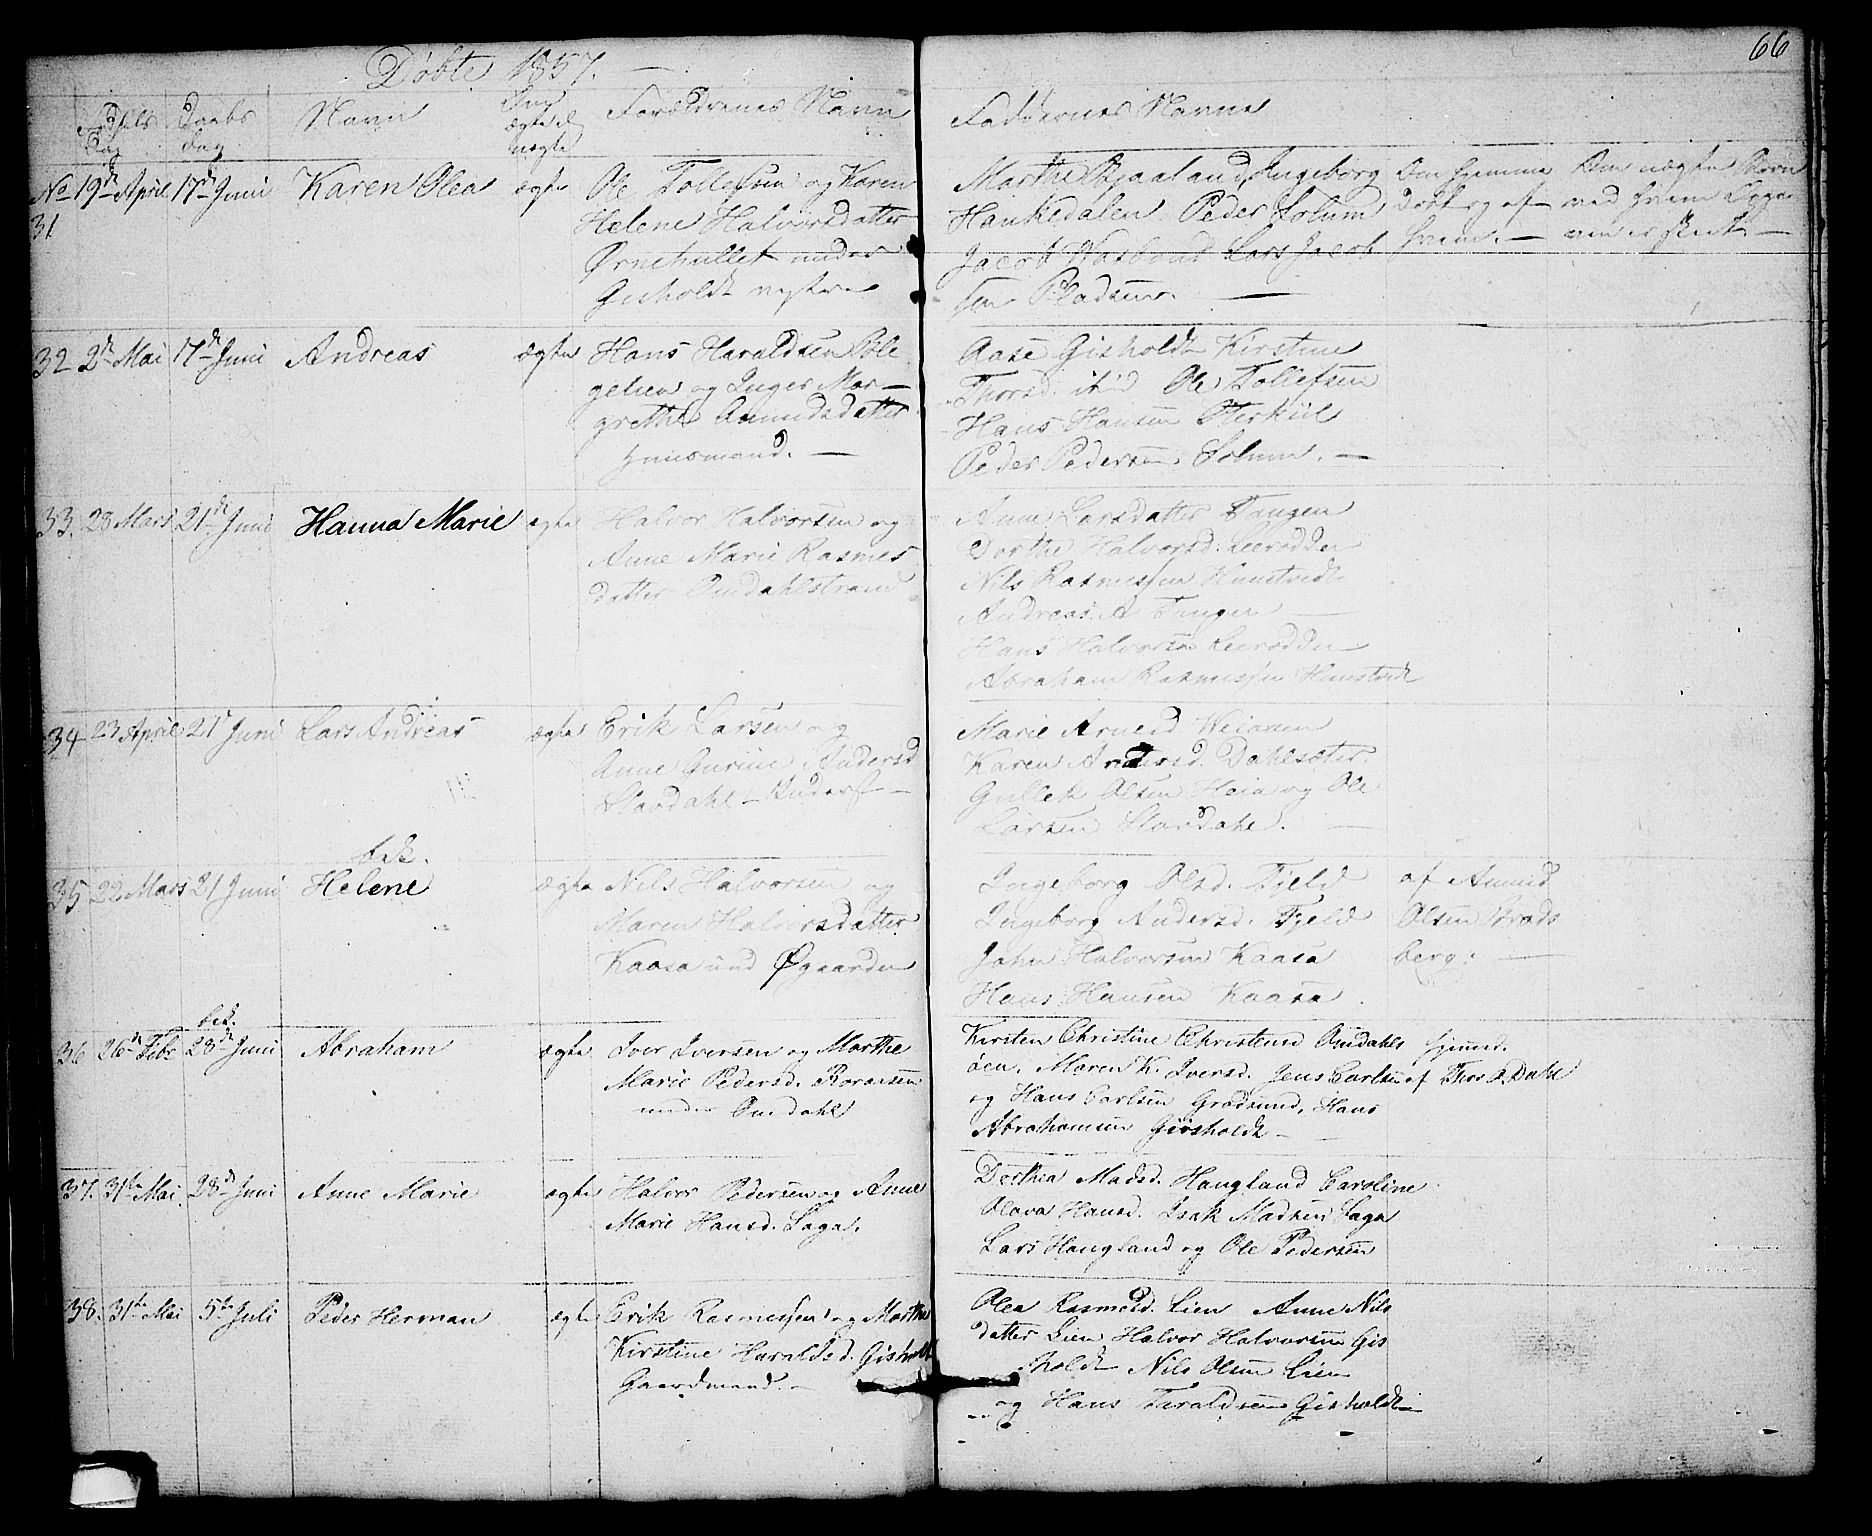 66
Døbte 1857.
Fødsels Dag
Daabs dag
Navn
Om ægte el uægte
Forældrenes Navn
Faddernes Navne
Om hjemme Døbt og af hvem.
Om uægte Børn ved hvem
No 31 19de April 17de Juni Karen Olea ægte Ole Tollefsen og Karen
Helene Halvorsdatter
Ørnehullet under
Gisholdt
Marthe Bjaaland, Ingeborg
Haukedalen Peder Solum
Jacob Lars Jacob
sen Pladsen.
32 2de Mai 17de Juni Andreas ægte Hans Haraldsen
og Inger Mar-
grethe Amundsdatter
Huusmand.
Aase Gisholdt Kirstine
Thorsd. Ole Tollefsen
Hans Hansen
Peder Pedersen Solum.
33. 28 Mars 21de Juni Hanna Marie ægte Halvor Halvorsen og
Anne Marie Rasmus
datter Omdahlstrand
Anne Larsdatter Tangen
Dorthe Halvorsd. Leerodden
Nils Rasmussen
Andreas A Tangen
Hans Halvorsen Leerodden
Abraham Rasmussen
34 23 April 21 Juni Lars Andreas ægte Erik Larsen og
Anne Gurine Andersd
Stavdahl
Marie Arnesd
Karen Andersd. Dahlsæter
Gullek Olsen Heia og Ole
Larsen Stavdahl.
bek.
35 22 Mars 21 Juni Helene ægte Nils Halvorsen og
Maren Halvorsdatter
Kaasa und Øgaarden
Ingeborg Olsd. Fjeld
Ingeborg Andersd. Fjeld
John Halvorsen Kaasa
Hans Hansen Kaasa.
af Amund
Olsen Brads
berg.
bek.
36 26de Febr 28de Juni Abraham ægte Iver Iversen og Marthe
Marie Pedersd.
under Omdahl
Kirsten Christine Christensd Omdahls
øen. Maren K. Iversd. Jens Carlsen
og Hans Carlsen Grødsund, Hans
Abrahamsen Gisholdt
hjemmed.
af Thor P. Dahl
37. 31te Mai 28de Juni Anne Marie ægte Halvor Pedersen og Anne
Marie Hansd. Saga.
Dorthea Madsd. Haugland Caroline
Olava Hansd. Isak Madsen Saga
Lars Haugland og Ole Pedersen
38. 31te Mai 5te Juli Peder Herman ægte Erik Rasmussen og Marthe
Kirstine Haraldsd. Gisholdt
Gaardmand.
Olea Rasmusd. Lien Anne Nils
datter Lien Halvor Halvorsen Gis
holdt Nils Olsen Lien
og Hans Taraldsen Gisholdt